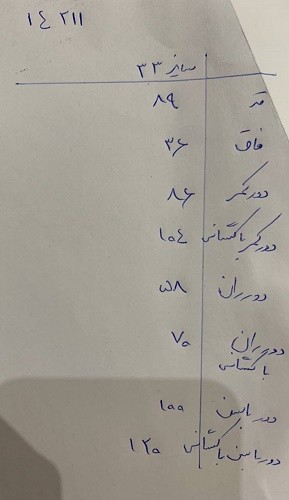 ۱٤ ۲۱۱
سایز ۳۳
قد ۸۹
فاق ۳۶
دور کمر ۸۶
دور کمر با کشسانی ۱۰٤
دور ران ۵۸
دور ران ۷۰
با کشسانی
دور باسن ۱۰۰
دور باسن با کشسانی ۱۲۰